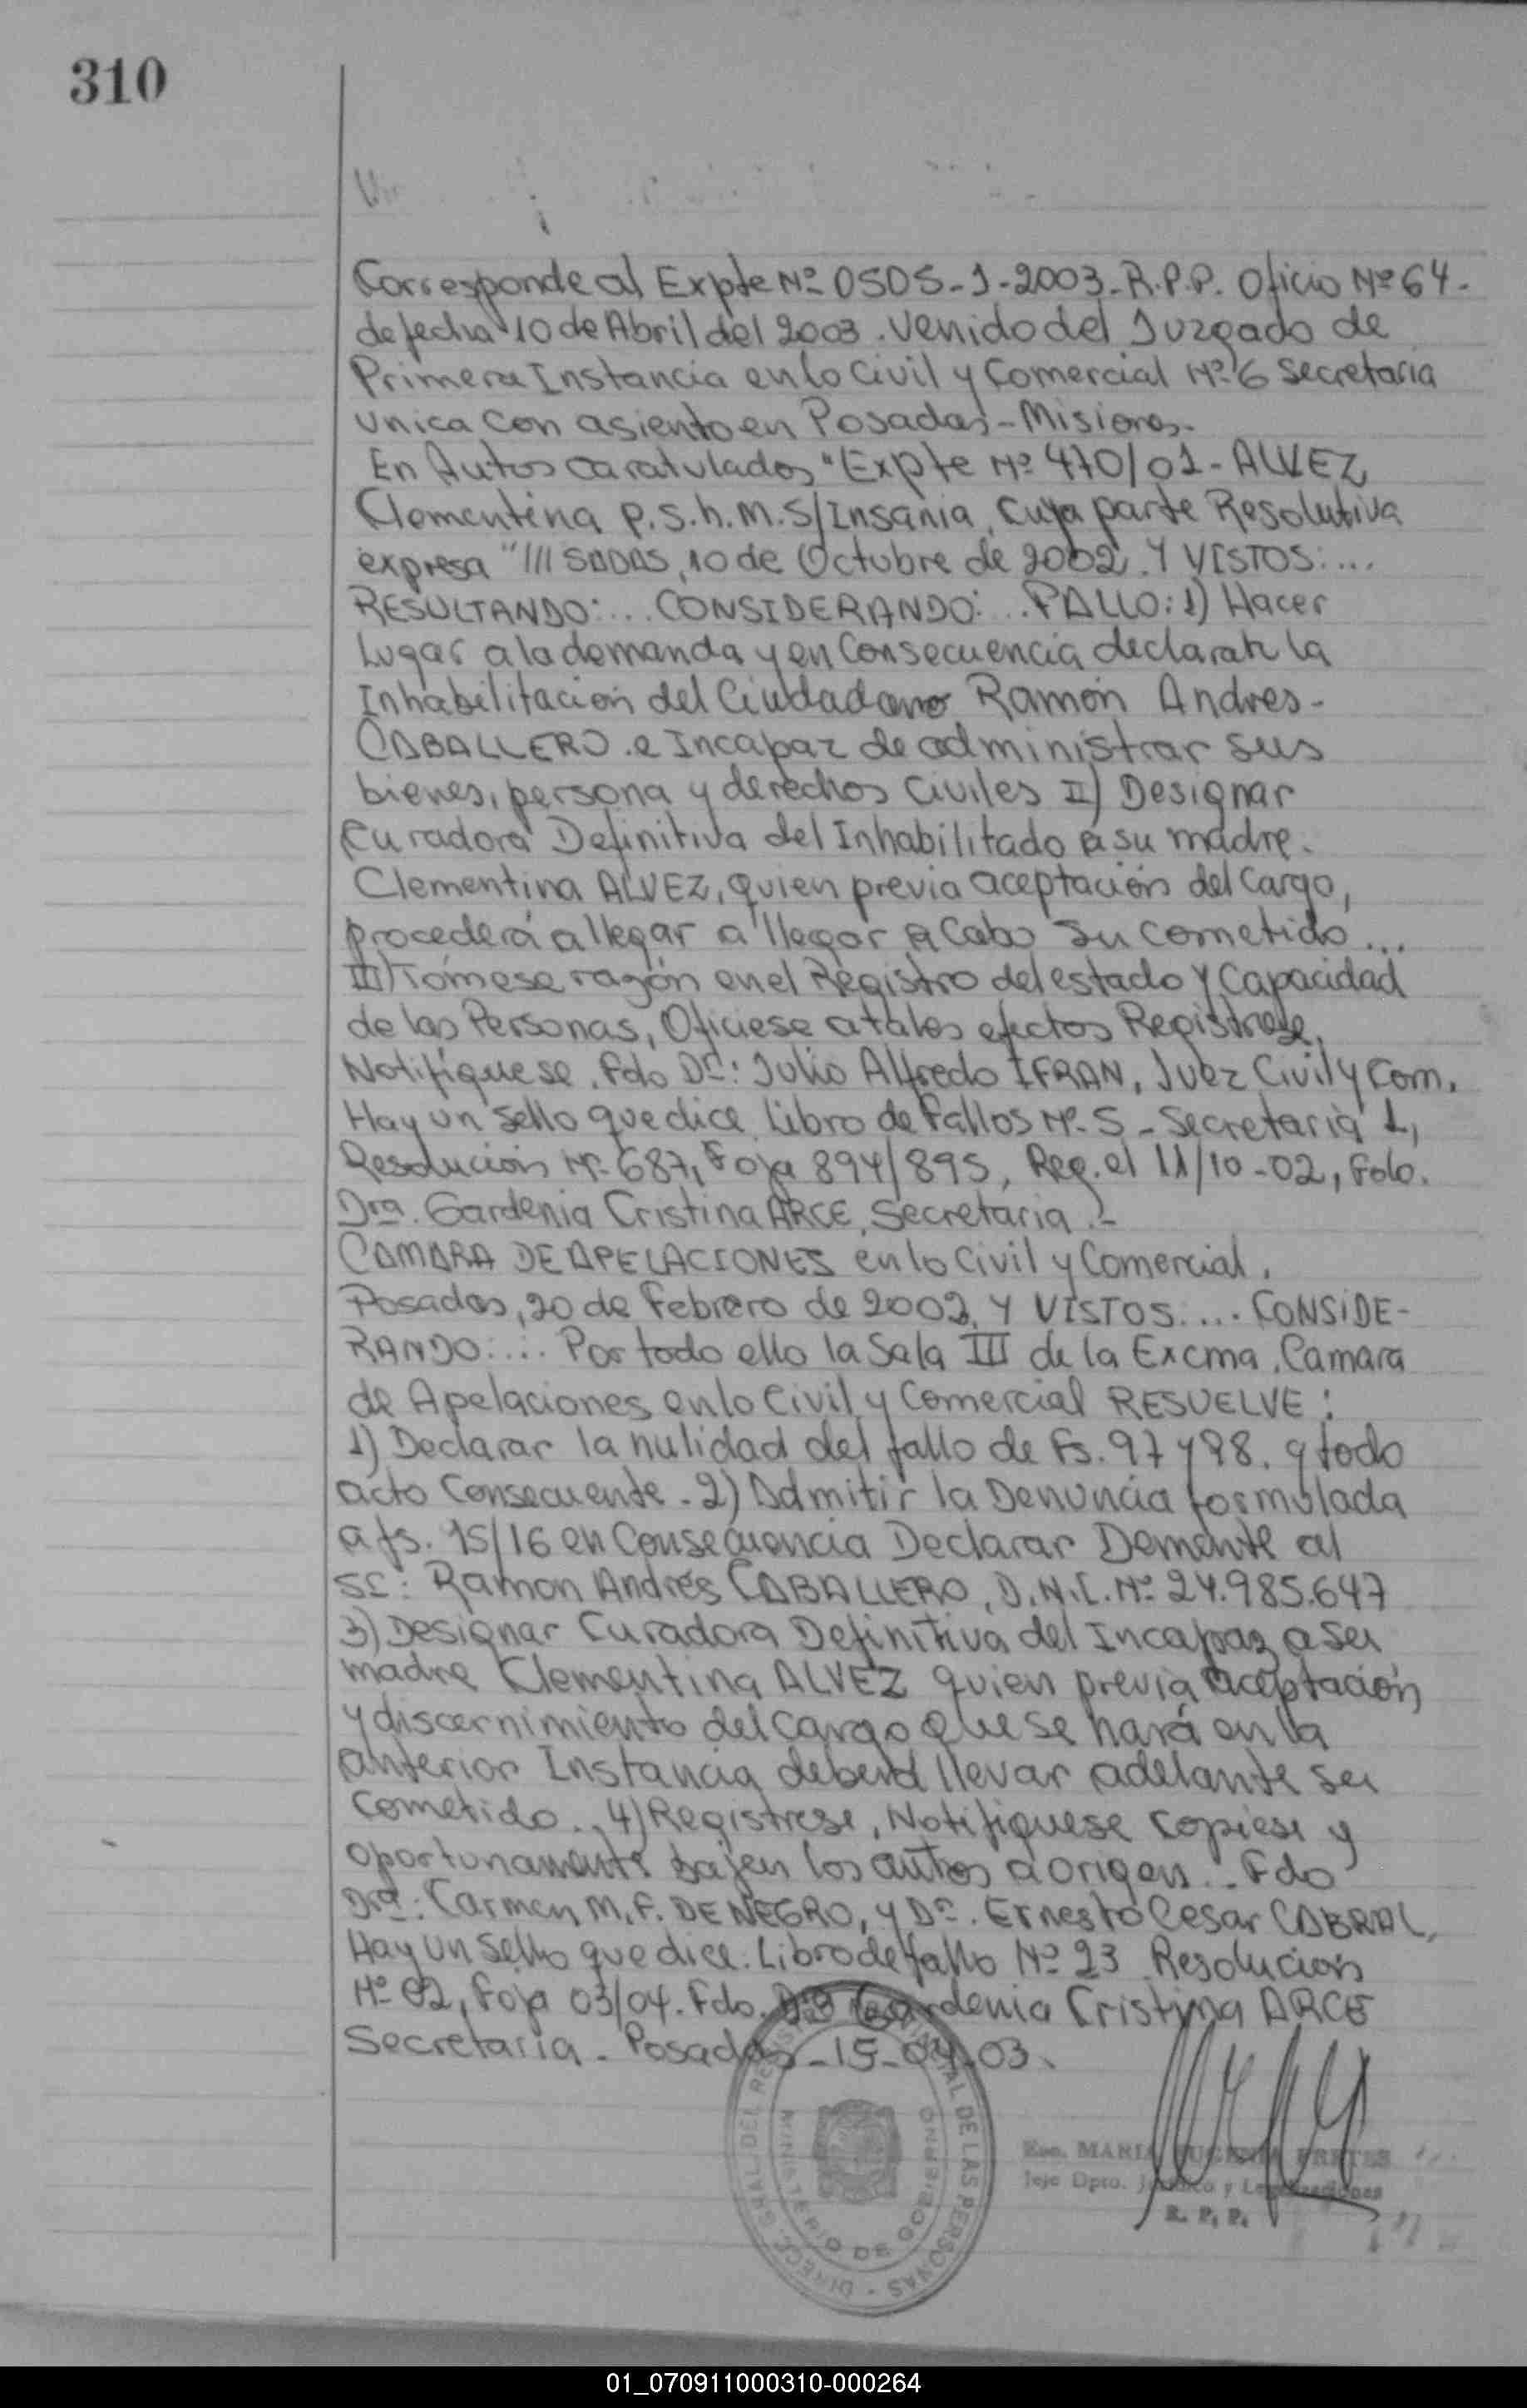 310
Corresponde al Expte Nº 0505-J-2003-R.P.P. Oficio Nº 64-
de fecha 10 de Abril del 2003. Venido del Juzgado de
Primera Instancia en lo Civil y Comercial Nº 6 Secretaria
unica con asiento en Posadas-Misiones-
En Autos caratulados "Expte Nº 470/01-ALVEZ
Clementina p.s.h.m. S/Insania, cuya parte Resolutiva
expresa "///SADAS, 10 de Octubre de 2002. Y VISTOS:...
RESULTANDO:... CONSIDERANDO:... FALLO: 1) Hacer
Lugar a la demanda y en Consecuencia declarar la
Inhabilitación del Ciudadano Ramón Andres-
CABALLERO. e Incapaz de administrar sus
bienes, persona y derechos civiles II) Designar
Curadora Definitiva del Inhabilitado a su madre.
Clementina ALVEZ, quien previa aceptación del Cargo,
procederá a llegar a llegar a Cabo su cometido...
III) Tómese razón en el Registro del estado y Capacidad
de las Personas, Ofíciese a tales efectos Registrese,
Notifíquese. Fdo Dr: Julio Alfredo IFRAN, Juez Civil y Com.
Hay un sello que dice Libro de Fallos Nº 5 - Secretaria 1,
Resolución Nº 687, Foja 894/895, Reg. el 11/10-02, Fdo.
Dra. Gardenia Cristina ARCE, Secretaria.-
CAMARA DE APELACIONES en lo Civil y Comercial.
Posadas, 20 de Febrero de 2002, Y VISTOS.... CONSIDE-
RANDO:... Por todo ello la Sala III de la Excma. Camara
de Apelaciones en lo Civil y Comercial RESUELVE:
1) Declarar la nulidad del fallo de Fs. 97 y 98. y todo
acto Consecuente. 2) Admitir la Denuncia formulada
a fs. 15/16 en Consecuencia Declarar Demente al
Sr: Ramon Andrés CABALLERO, D.N.I. Nº 24.985.647
3) Designar Curadora Definitiva del Incapaz a su
madre Clementina ALVEZ quien previa aceptación
y discernimiento del cargo que se hará en la
anterior Instancia deberá llevar adelante su
Cometido.. 4) Registrese, Notifiquese Copiese y
oportunamente bajen los autos a origen... Fdo
Dra: Carmen M.F. DE NEGRO, y Dr. Ernesto Cesar CABRAL,
Hay un sello que dice: Libro de fallo Nº 23 Resolución
Nº 02, Foja 03/04. Fdo. Dra Gardenia Cristina ARCE
Secretaria - Posadas - 15-04-03.
MINISTERIO DE GOBIERNO
Esc. MARIA EUGENIA PRETES
Jefe Dpto. Jurídico y Legalizaciones
R. P. P.
01_070911000310-000264